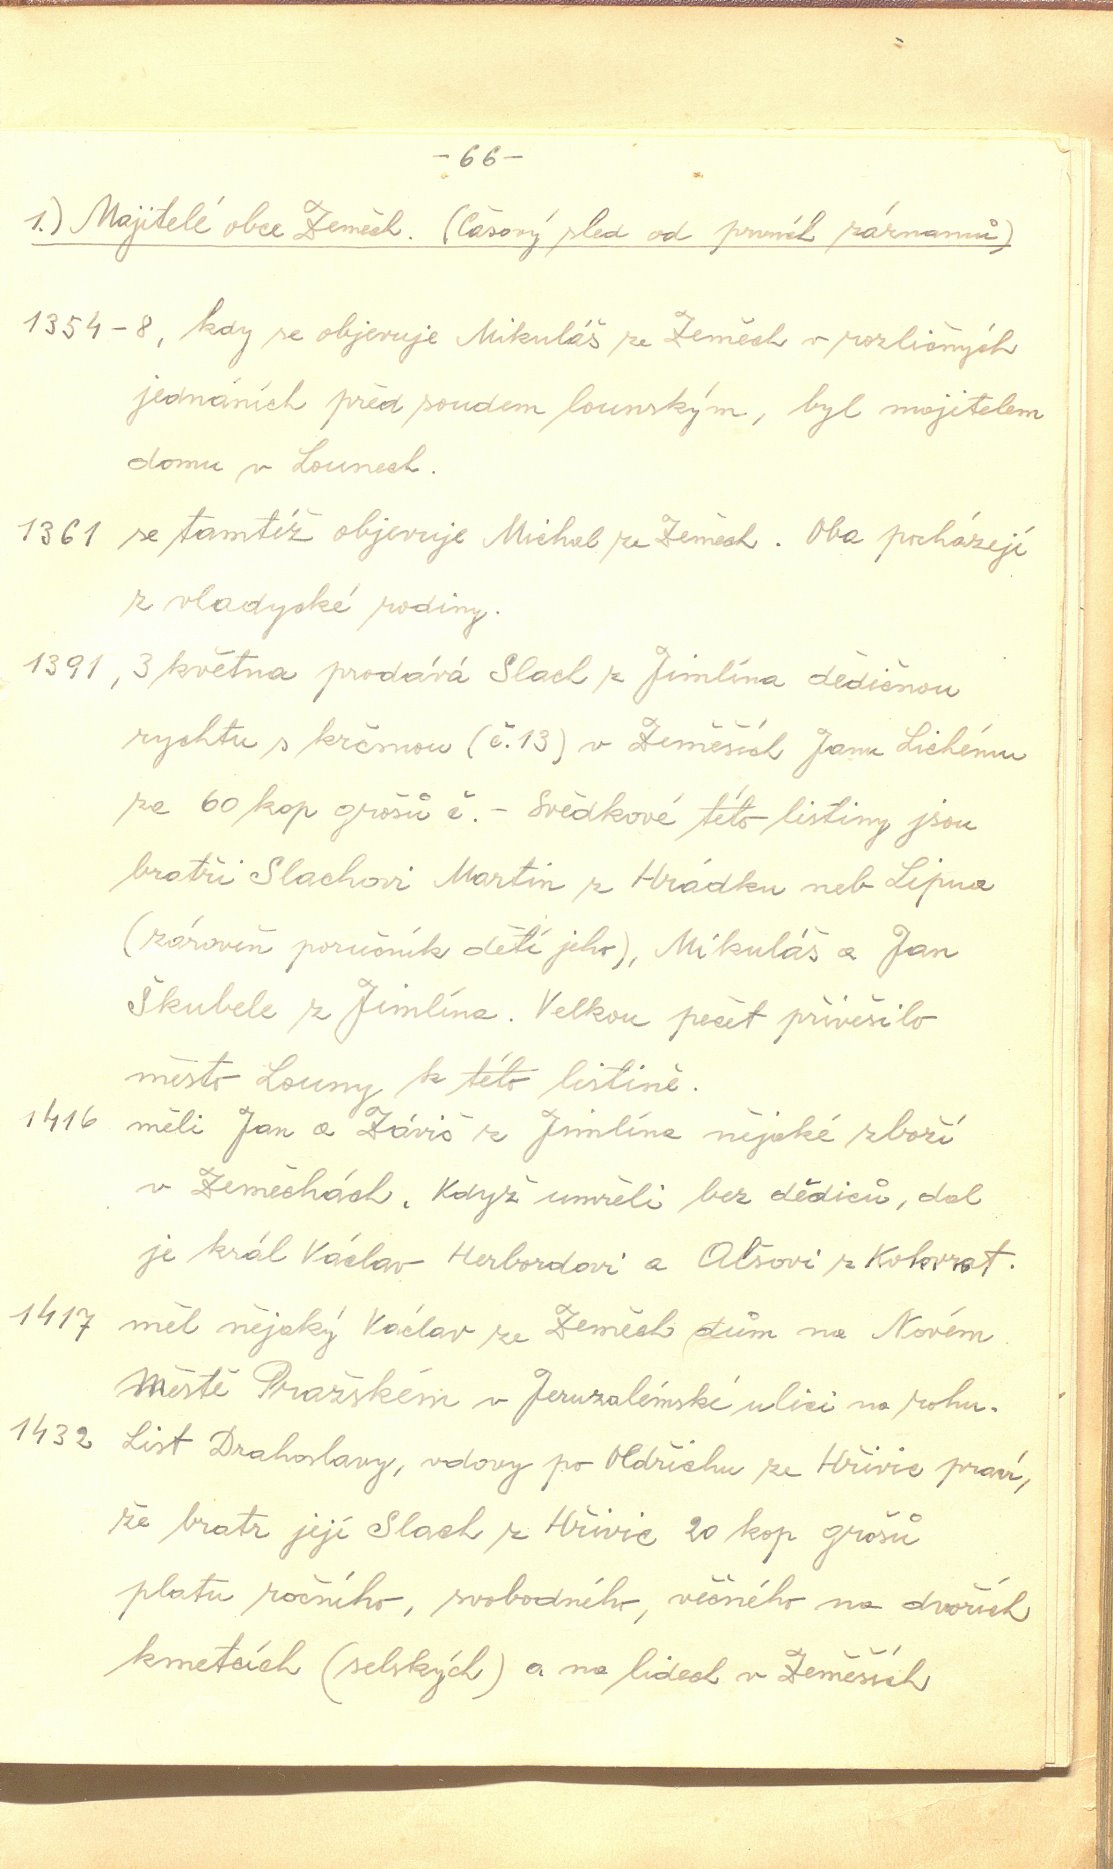 - 66 -
1.) Majitelé obce Zeměch. (Časový sled od prvních záznamů)
1354 - 8, kdy se objevuje Mikuláš ze Zeměch v rozličných
jednáních před soudem lounským, byl majitelem
domu v Lounech.
1361 se tamtéž objevuje Michal ze Zeměch. Oba pocházejí
z vladycké rodiny.
1391, 3 května prodává Slach z Jimlína dědičnou
rychtu s krčmou (č.13) v Zeměších Janu Lichému
za 60 kop grošů č. - Svědkové této listiny jsou
bratři Slachovi Martin z Hrádku neb Lipna
(zároveň poručník dětí jeho), Mikuláš a Jan
Škubele z Jimlína. Velkou pečet přivěsilo
město Louny k této listině.
1416 měli Jan a Záviš z Jimlína nějaké zboží
v Zeměchách. Když umřeli bez dědiců, dal
je král Václav Herbordovi a Alšovi z Kolovrat.
1417 měl nějaký Václav ze Zeměch dům na Novém
Městě Pražském v Jeruzalémské ulici na rohu.
1432 List Drahoslavy, vdovy po Oldřichu ze Hřivic praví,
že bratr její Slach z Hřivic 20 kop grošů
platu ročního, svobodného, věčného na dvořích
kmetcích (selských) a na lidech v Zeměších